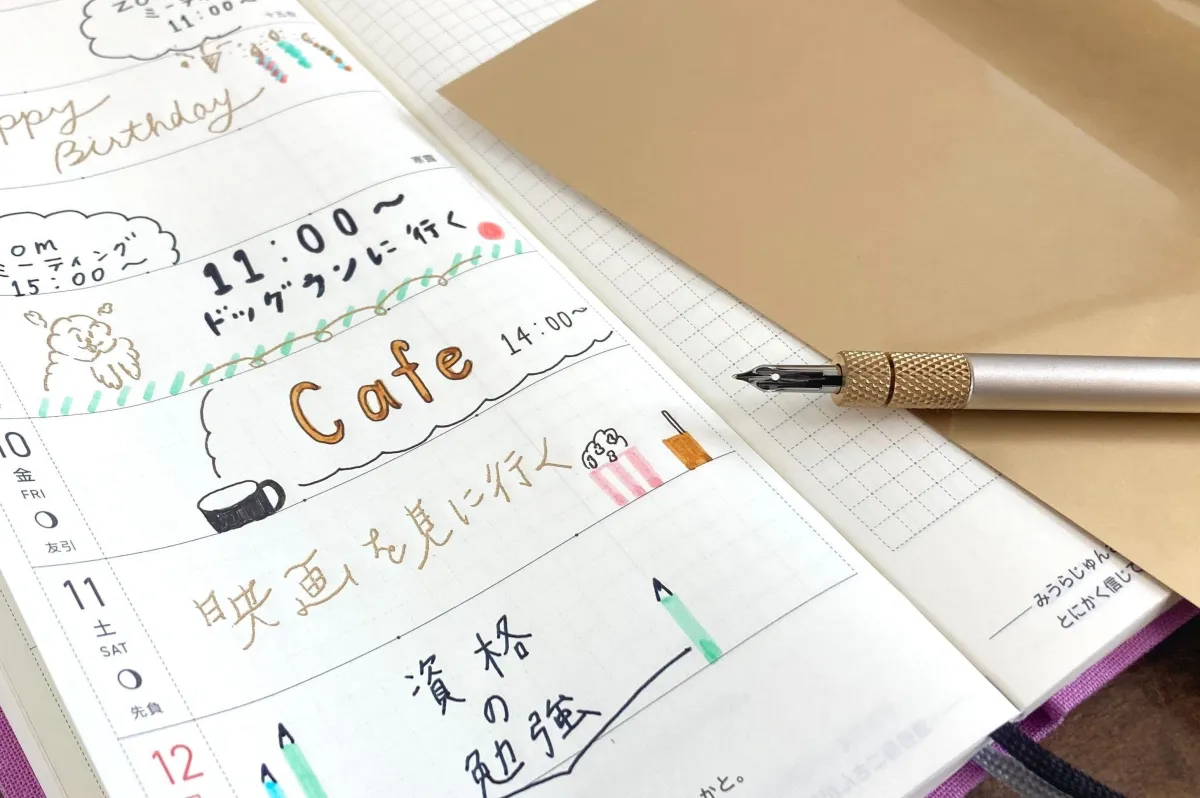 ミーティング
11:00〜
ppy
Birthday
寒露
om
ミーティング
15:00〜
11:00〜
ドッグランに行く
Cafe
14:00〜
10
金
FRI
友引
映画を見に行く
11
土
SAT
先負
資格
の
勉強
12
かと。
みうらじゅん
とにかく信じて